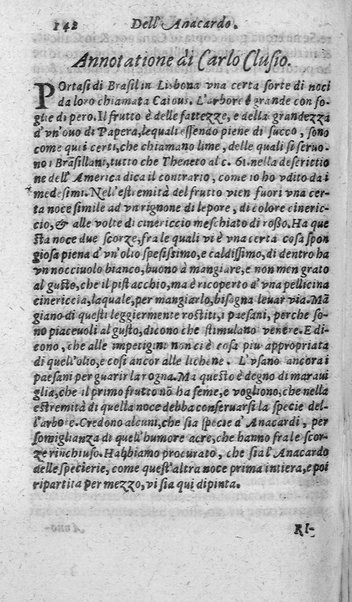 142 Dell'Anacardo.
Annotatione di Carlo Clusio.
POrtasi di Brasil in Lisbona vna certa sorte di noci
da loro chiamata Caious. L'arbore è grande con fo-
glie di pero. Il frutto è delle fattezze, e della grandezza
d'vn'ouo di Papera, lequali essendo piene di succo, sono
come qui i certi, che chiamano lime, delle quali si seruo-
no i Brasillani, tutto che Theueto al c. 61. nella descrittione
dell'America dica il contrario, come io ho vdito da i
medesimi. Nell'estremità del frutto vien fuori vna cer-
ta noce simile ad vn rignone di lepore, di colore cineric-
cio, & alle volte di cinericcio meschiato di roßo. Ha que
sta noce due scorze, fra le quali vi è vna certa cosa spon
giosa piena d'vn'olio spesissimo, e caldissimo, di dentro ha
vn nocciuolo bianco, buono à mangiare, e non men grato
al gusto, che il pistacchio, ma è ricoperto d'vna pellicina
cinericcia, laquale, per mangiarlo, bisogna leuar via. Ma
giano di questi leggiermente rostiti, i paesani, perche so-
no piaceuoli al gusto, dicono che stimulano venere. E di-
cono, che alle impetigini non ci è cosa piu appropriata
di quell'olio, e così ancor alle lichene. L'vsano ancora i
paesani per guarir la rogna. Ma questo è degno di maraui
glia, che il primo frutto nō ha seme, e vogliono, che nella
estremità di quella noce debba conseruarsi la specie del-
l'arbore. Credono alcuni, che sia specie d'Anacardi, per
somiglianza di quell'humore acre, che hanno fra le scor-
ze rinchiuso. Habbiamo procurato, che sia l'Anacardo
delle specierie, come quest'altra noce prima intiera, e poi
ripartita per mezzo, vi sia qui dipinta.
RI-